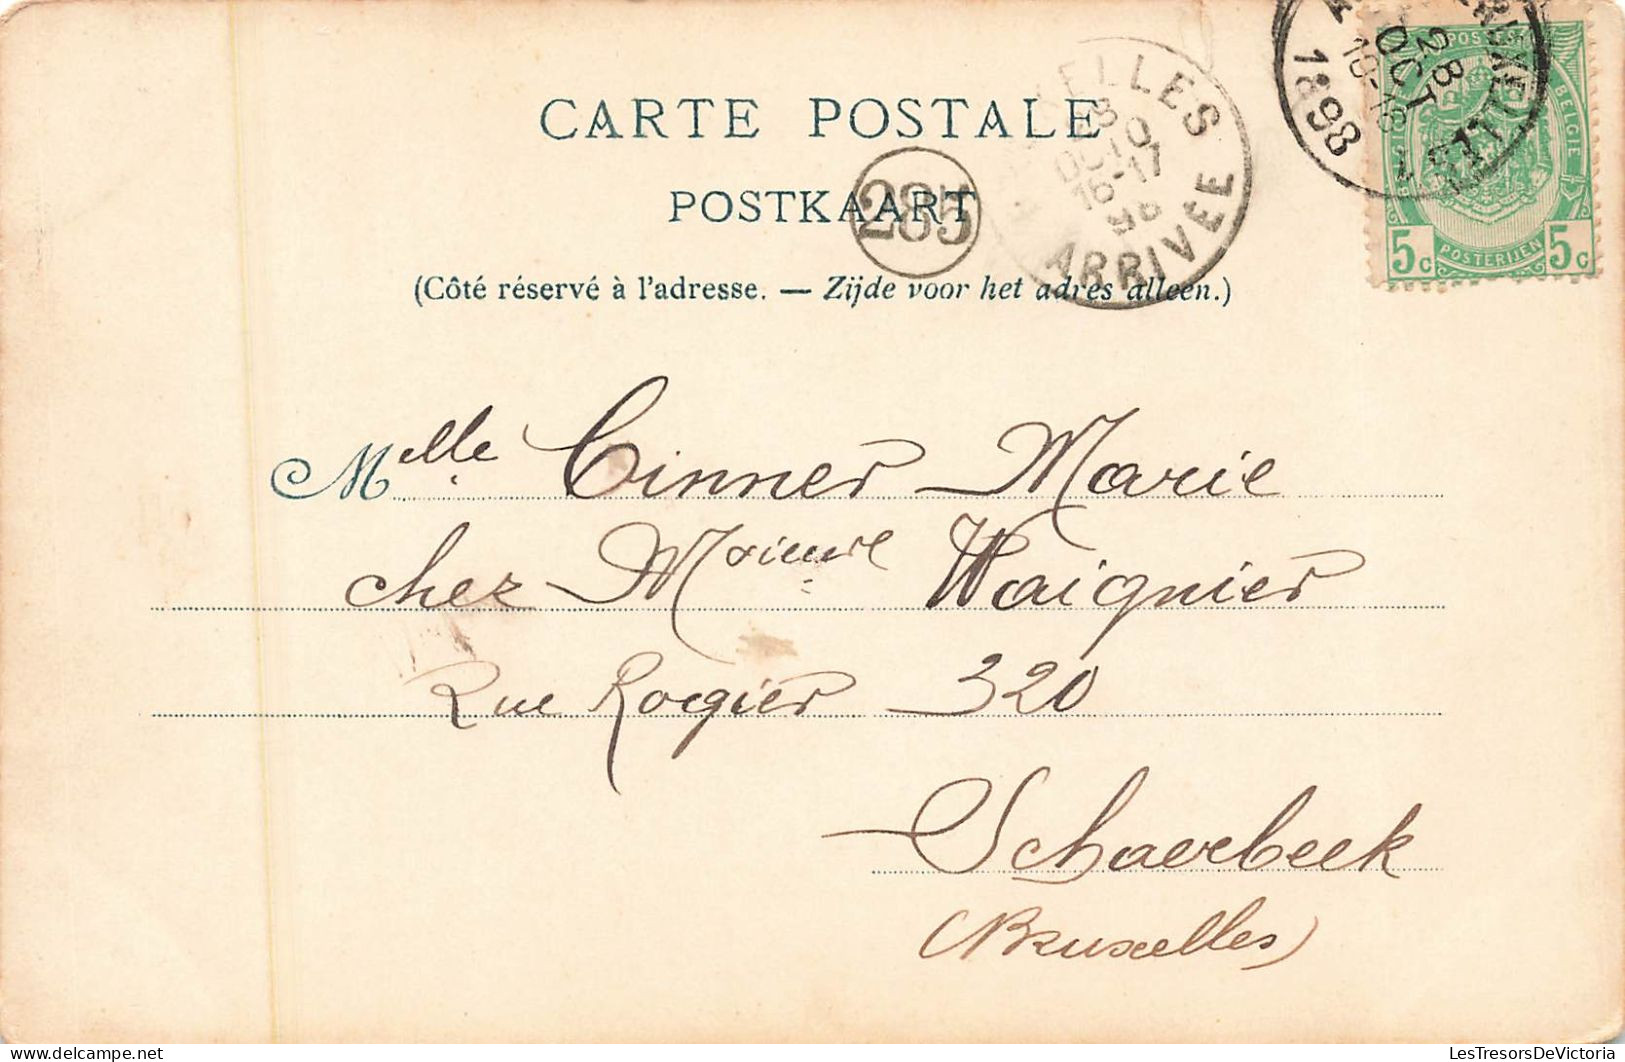 CARTE POSTALE
POSTKAART
285
(Côté réservé à l'adresse. — Zijde voor het adres alleen.)
ELLES
28
OCTO
16-17
98
ARRIVEE
28
OCT
1898
POSTES
BELGIE
5c POSTERIJEN 5c
Melle Cinner Marie
chez Waignier
Rue Rogier 320
Schaerbeek
(Bruxelles)
LesTresorsDeVictoria
www.delcampe.net